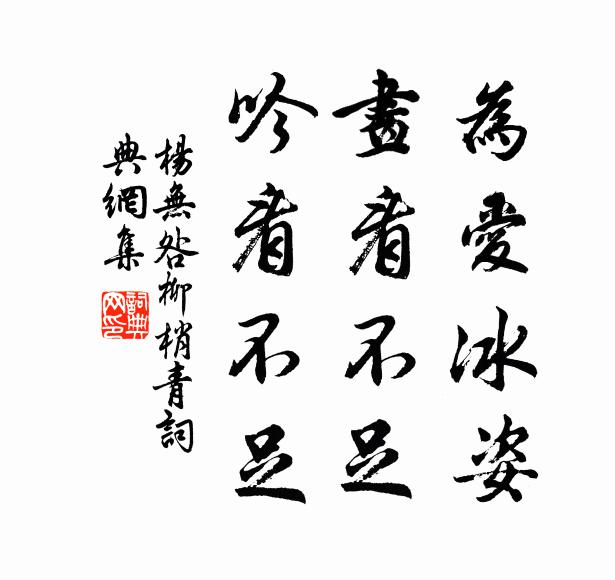 為愛冰姿
畫看不足
吟看不足
楊無咎柳梢青詞
典網集
詞典
网印